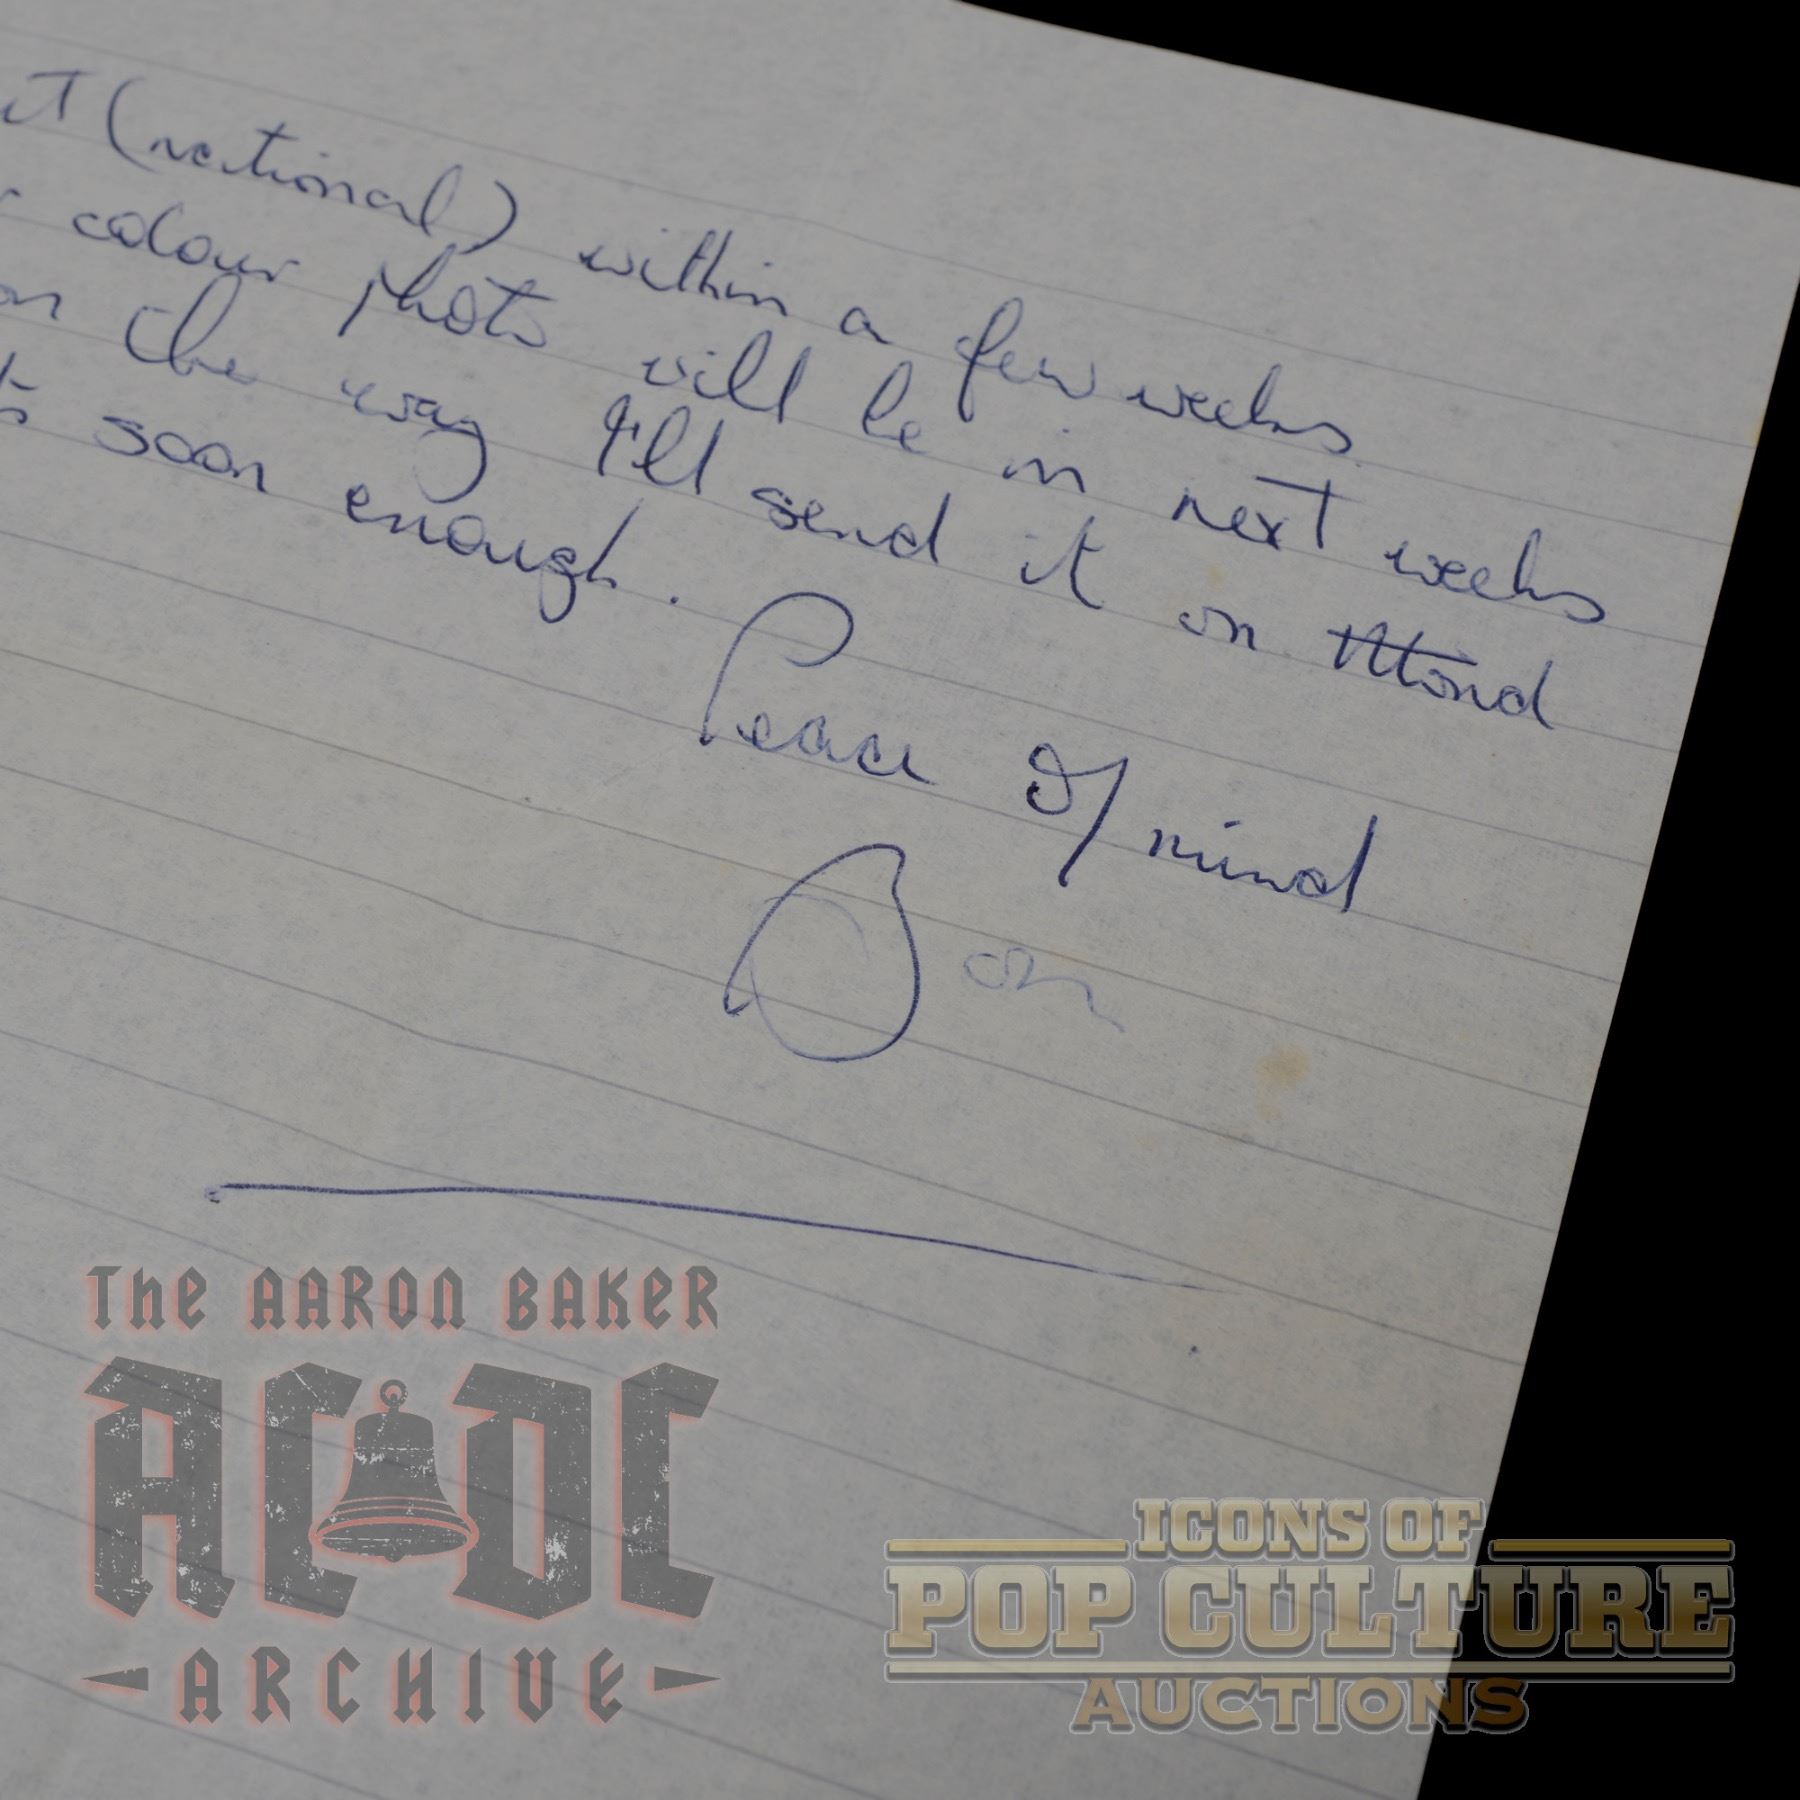 (national) within a few weeks
colour photo will be in next weeks
on the way I'll send it on Mond
soon enough.
Peace Of mind
Bon
The AARON BAKER
ACDC
ARCHIVE
ICONS OF
POP CULTURE
AUCTIONS